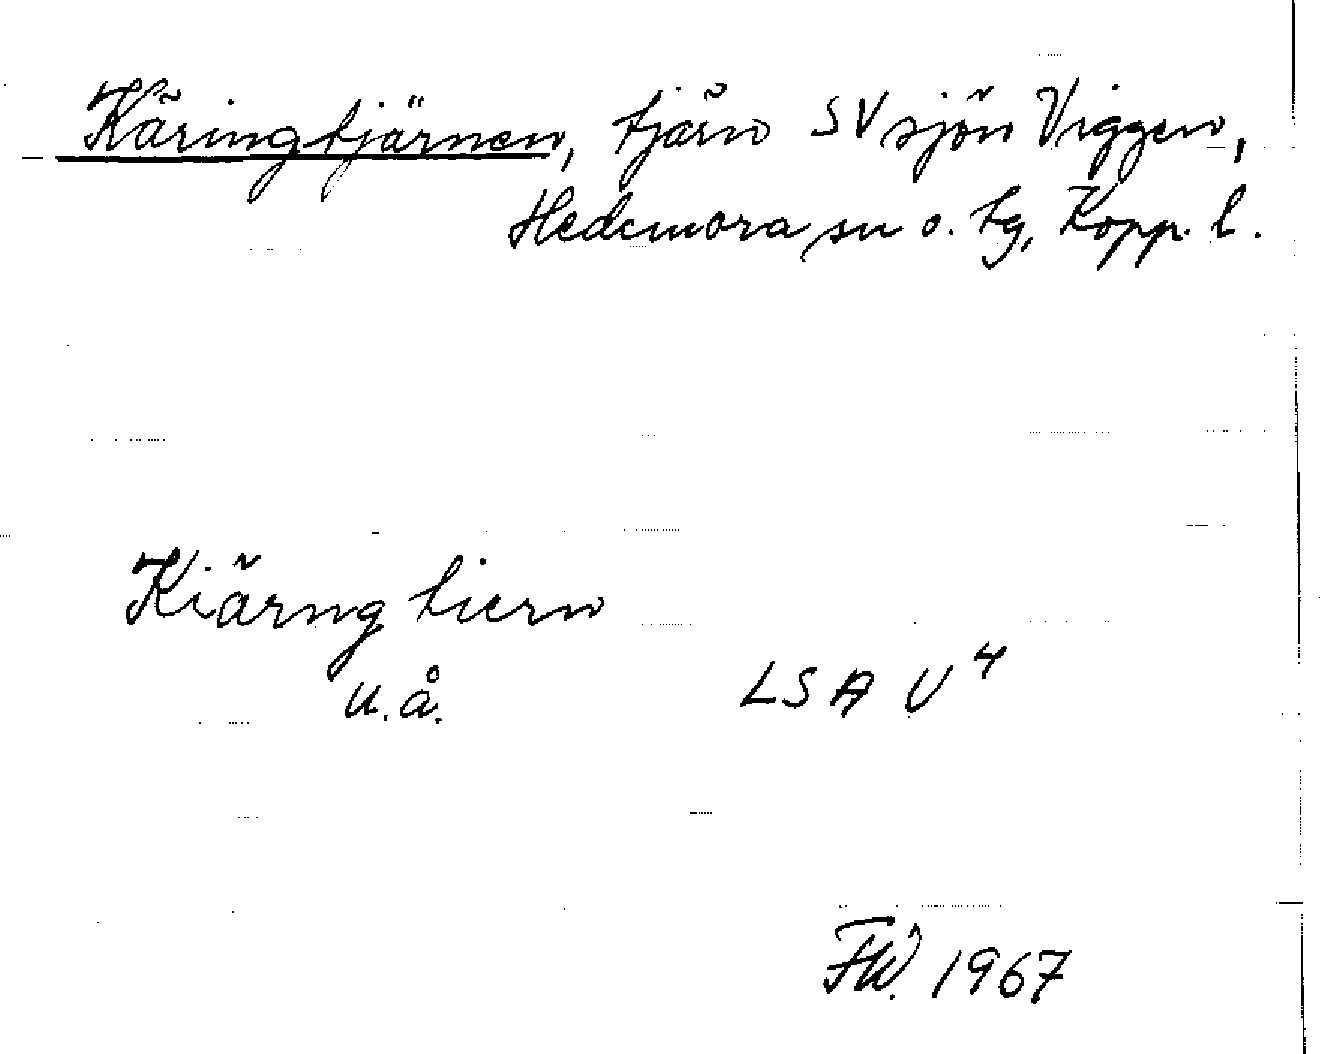 Käringtjärnen, tjärn SV sjön Viggen,
Hedemora sn o. tg, Kopp. l.
Kiärng tiern
u.å. LSA U⁴
FW. 1967